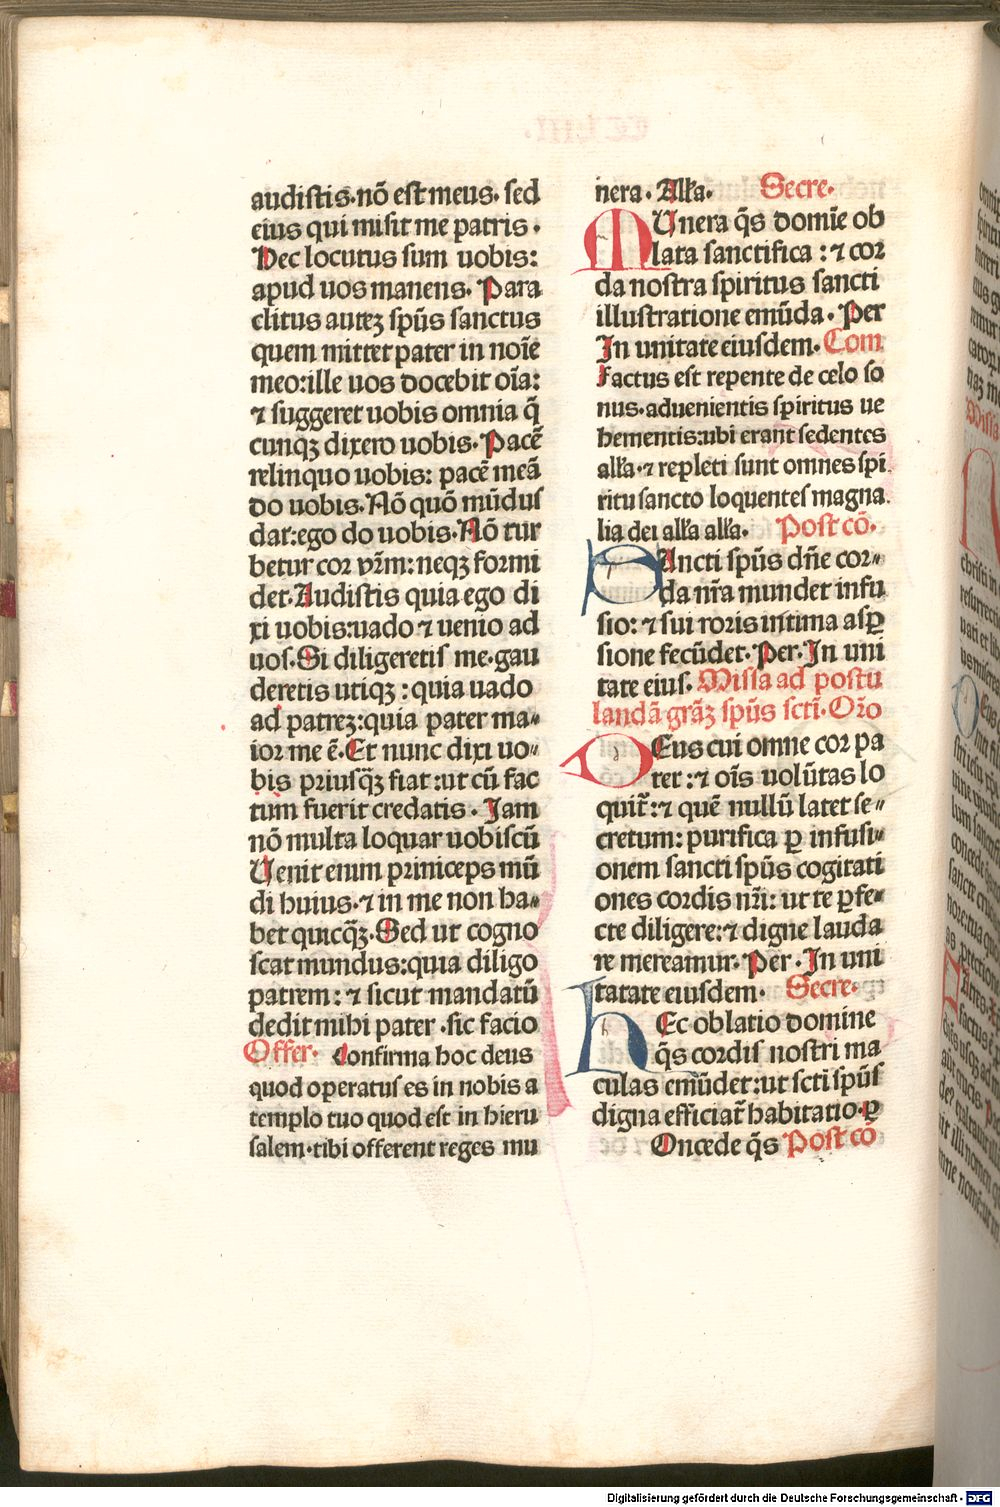 audistis·nō est meus· sed
eius qui misit me patris ·
Hec locutus sum uobis:
apud uos manens· Para
clitus autez spūs sanctus
quem mittet pater in noīe
meo:ille uos docebit oīa:
⁊ suggeret uobis omnia q̄
cunqz dixero uobis· Pacē
relinquo uobis: pacē meā
do uobis· Nō quō mūdus
dat:ego do uobis· Nō tur
betur cor vr̄m: neqz formi
det· Audistis quia ego di
xi uobis:uado ⁊ uenio ad
uos· Si diligeretis me·gau
deretis utiqz : quia uado
ad patrez:quia pater ma⸗
ior me ē· Et nunc dixi uo⸗
bis priusqz̄ fiat :ut cū fac
tum fuerit credatis · Jam
nō multa loquar uobiscū
Uenit enim priniceps mū
di huius·⁊ in me non ha⸗
bet quicqz̄· Sed ut cogno
scat mundus:quia diligo
patrem: ⁊ sicut mandatū
dedit mihi pater ·sic facio
Offer· Confirma hoc deus
quod operatus es in nobis a
templo tuo quod est in hieru
salem·tibi offerent reges mu
nera · Alła· Secre·
MUnera q̄s domīe ob
lata sanctifica : ⁊ cor
da nostra spiritus sancti
illustratione emūda · Per
In unitate eiusdem· Com
Factus est repente de celo so
nus·aduenientis spiritus ue
hementis:ubi erant sedentes
alła·⁊ repleti sunt omnes spi
ritu sancto loquentes magna
lia dei alła alła· Post cō·
SAncti spūs dn̄e cor⸗
da nr̄a mundet infu
sio: ⁊ sui roris intima asꝑ
sione fecūdet· Per· In uni
tate eius· Missa ad postu
landā grāz spūs scti· Orō
DEus cui omne cor pa
tet : ⁊ oīs uolūtas lo
quit̄: ⁊ quē nullū latet se⸗
cretum: purifica ꝑ infusi⸗
onem sancti spūs cogitati
ones cordis nr̄i: ut te ꝑfe⸗
cte diligere:⁊ digne lauda
re mereamur· Per · In uni
tatate eiusdem· Secre·
HEc oblatio domine
q̄s cordis nostri ma
culas emūdet:ut scti spūs
digna efficiat̄ habitatio·ꝑ
Oncede q̄s Post cō
Digitalisierung gefördert durch die Deutsche Forschungsgemeinschaft - DFG